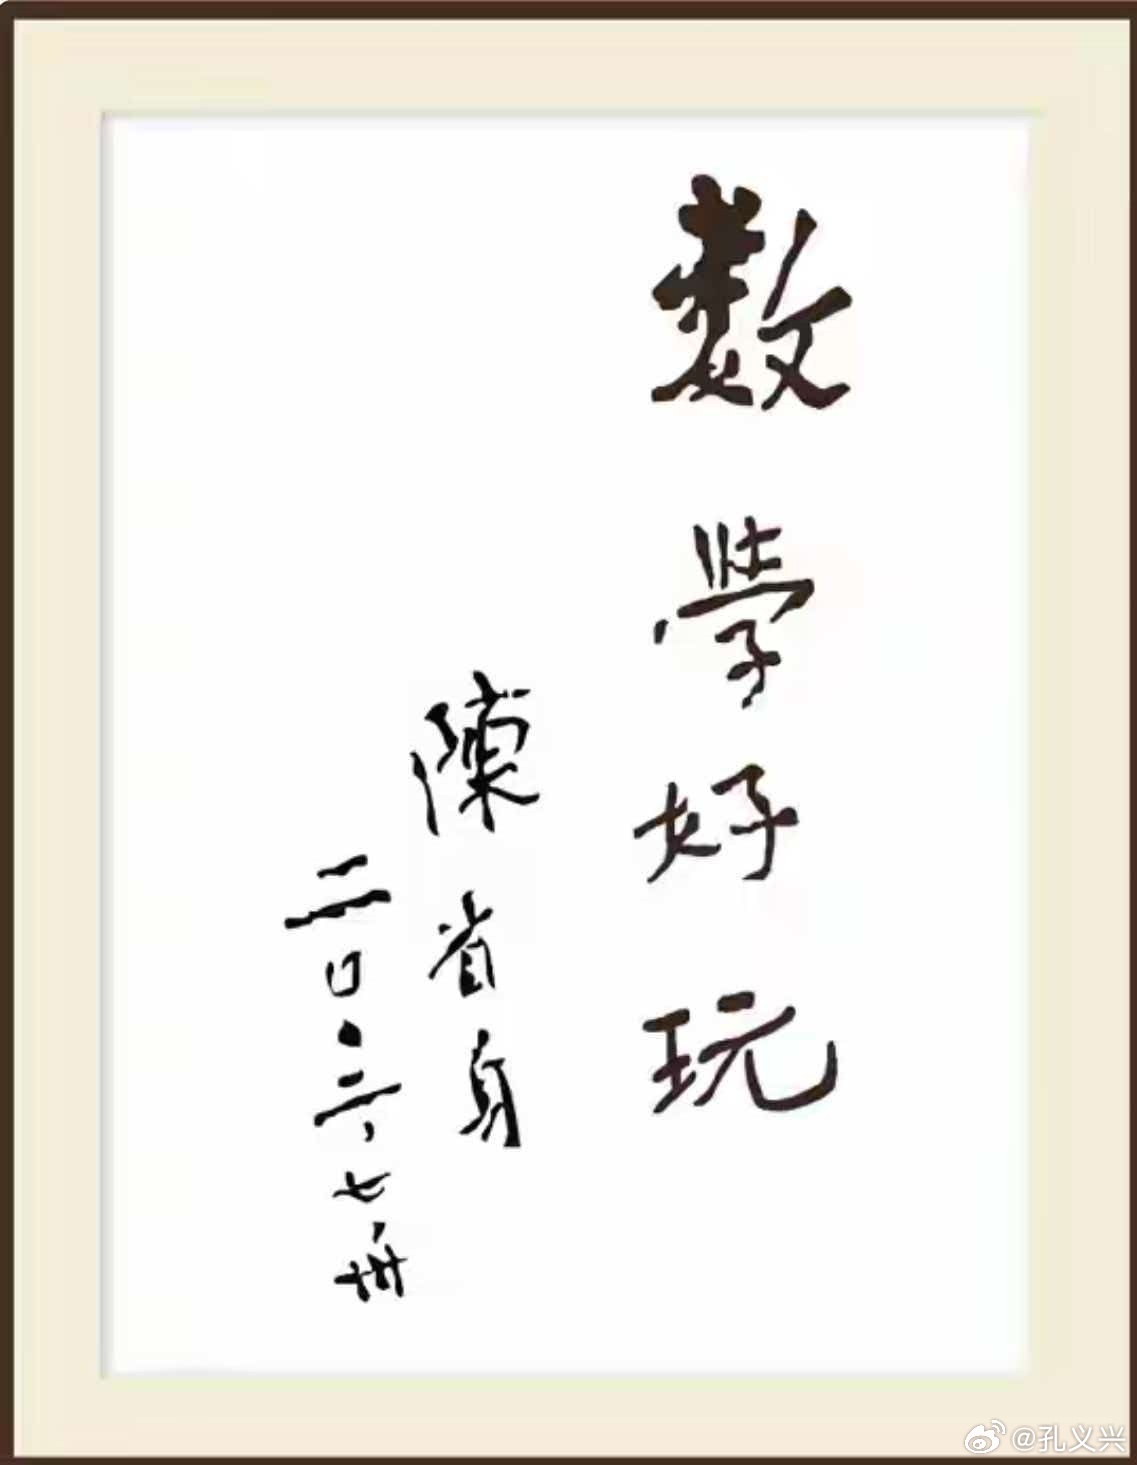 數學好玩
陳省身
二〇〇二、七、卅
@孔义兴